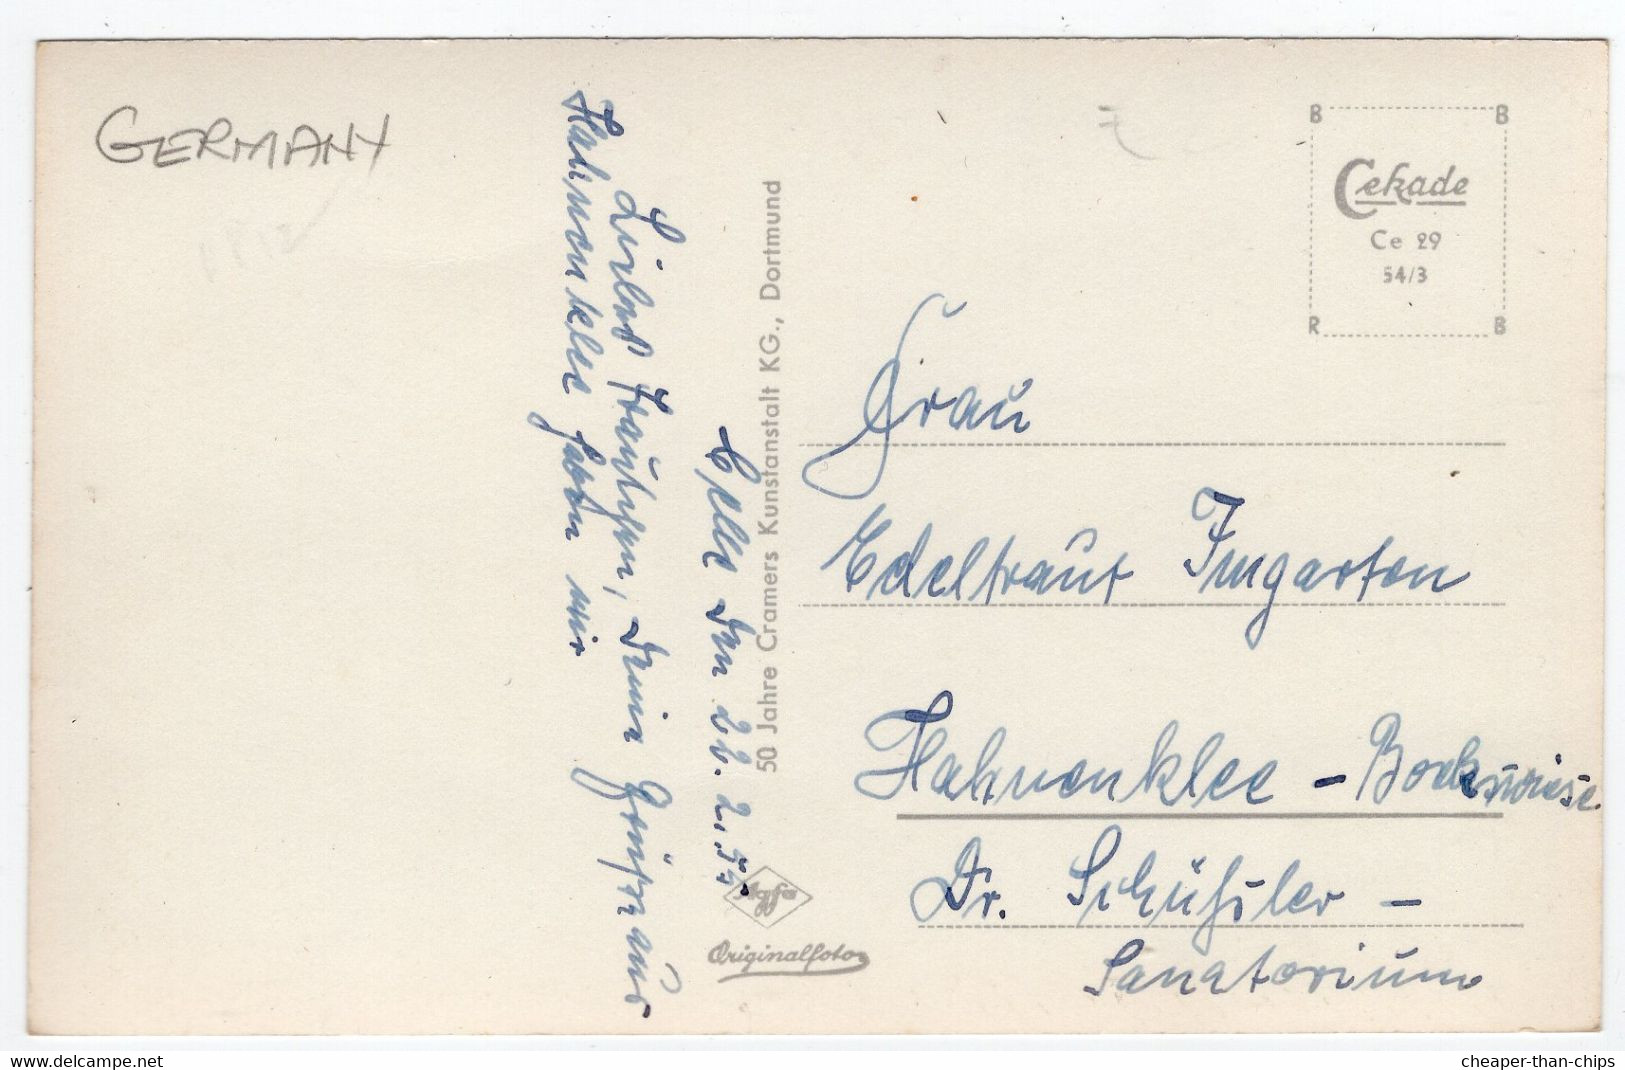 GERMANY
Celle den 22. 2. 55
Liebes Frauchen, Deine Grüße aus
Hahnenklee haben wir
50 Jahre Cramers Kunstanstalt KG., Dortmund
Agfa
Originalfoto
B B
Cekade
Ce 29
54/3
R B
Frau
Edeltraut Imgarten
Hahnenklee - Bockswiese
Dr. Schüßler -
Sanatorium
www.delcampe.net
cheaper-than-chips